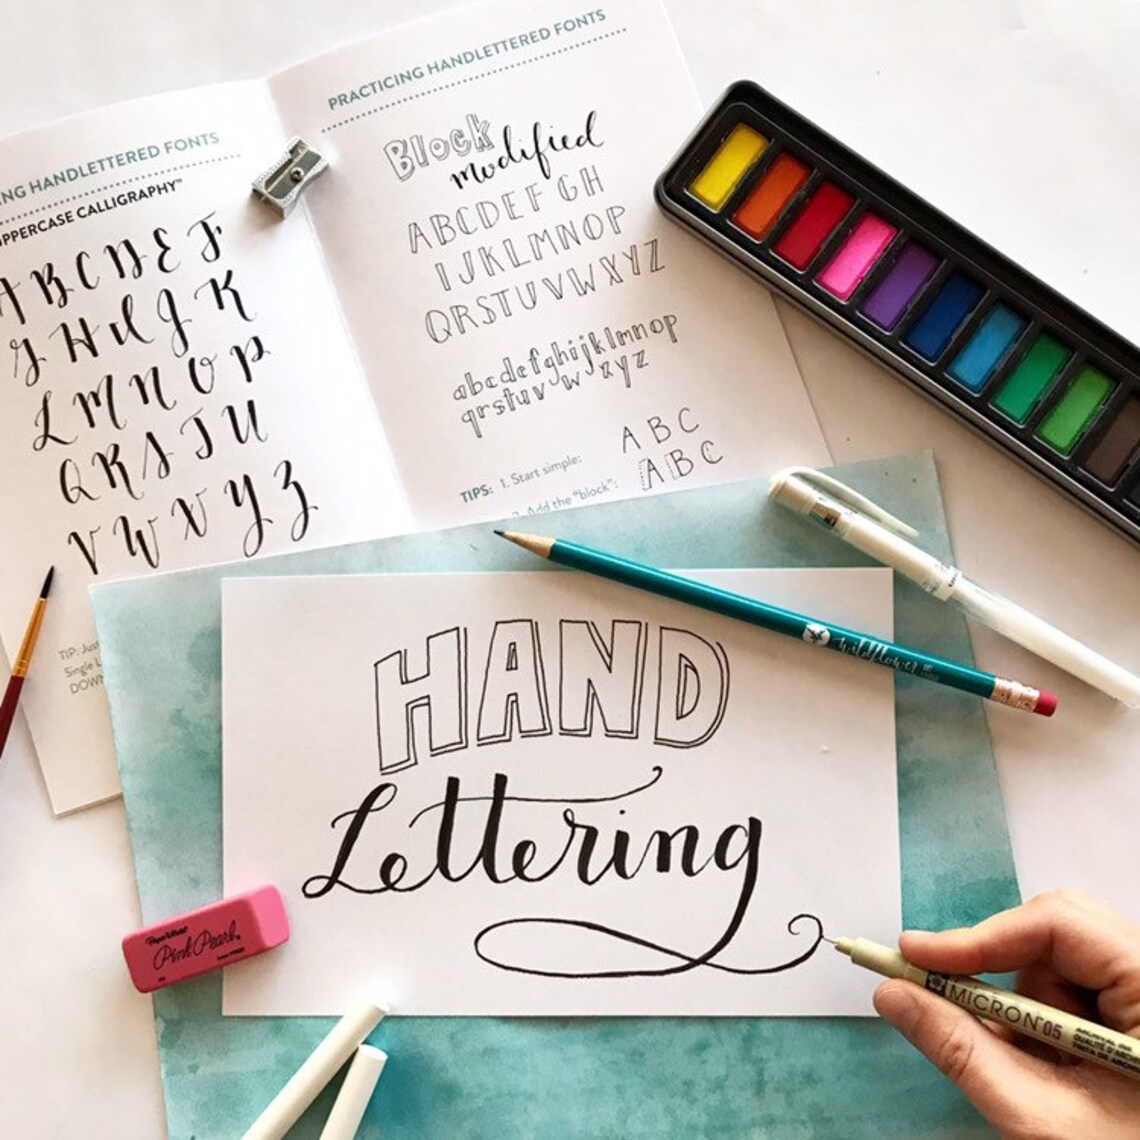 NG HANDLETTERED FONTS
PPERCASE CALLIGRAPHY™
A B C D E F
G H I J K
L M N O P
Q R S T U
V W X Y Z
TIP: Jus
Single L
DOWN
PRACTICING HANDLETTERED FONTS
Block
modified
ABCDEFGH
IJKLMNOP
QRSTUVWXYZ
abcdefghijklmnop
qrstuv w xyz
TIPS: 1. Start simple: A B C
2. Add the "block": A B C
HAND
Lettering
wildflower
Paper Mate
Pink Pearl
MICRON 05
ARCHIVAL INK